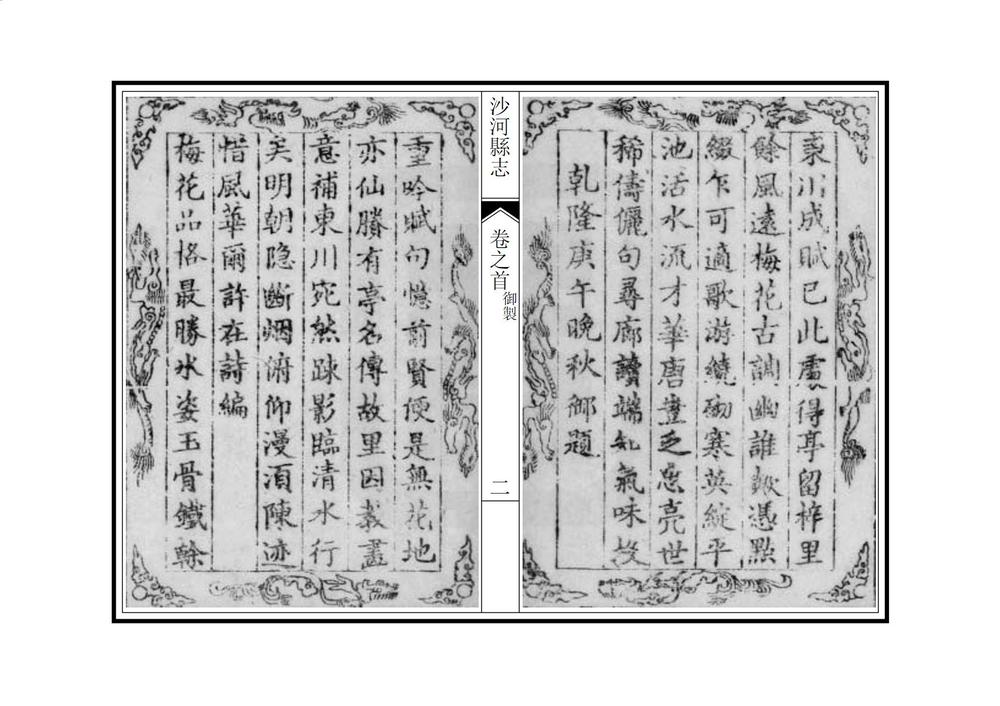 東川成賦已此處得亭留梓里
餘風遠梅花古調幽誰教憑點
綴乍可適歌游繞砌寒英綻平
池活水流才華唐豈乏忠亮世
稀儔儷句尋廊讀端如氣味投
乾隆庚午晚秋御題
沙河縣志
卷之首
御製
二
重吟賦句憶前賢便是無花地
亦仙賸有亭名傳故里因裁畫
意補東川宛然疎影臨清水行
矣明朝隐斷烟俯仰漫湏陳迹
惜風華爾許在詩編
梅花品格最勝氷姿玉骨鐵榦